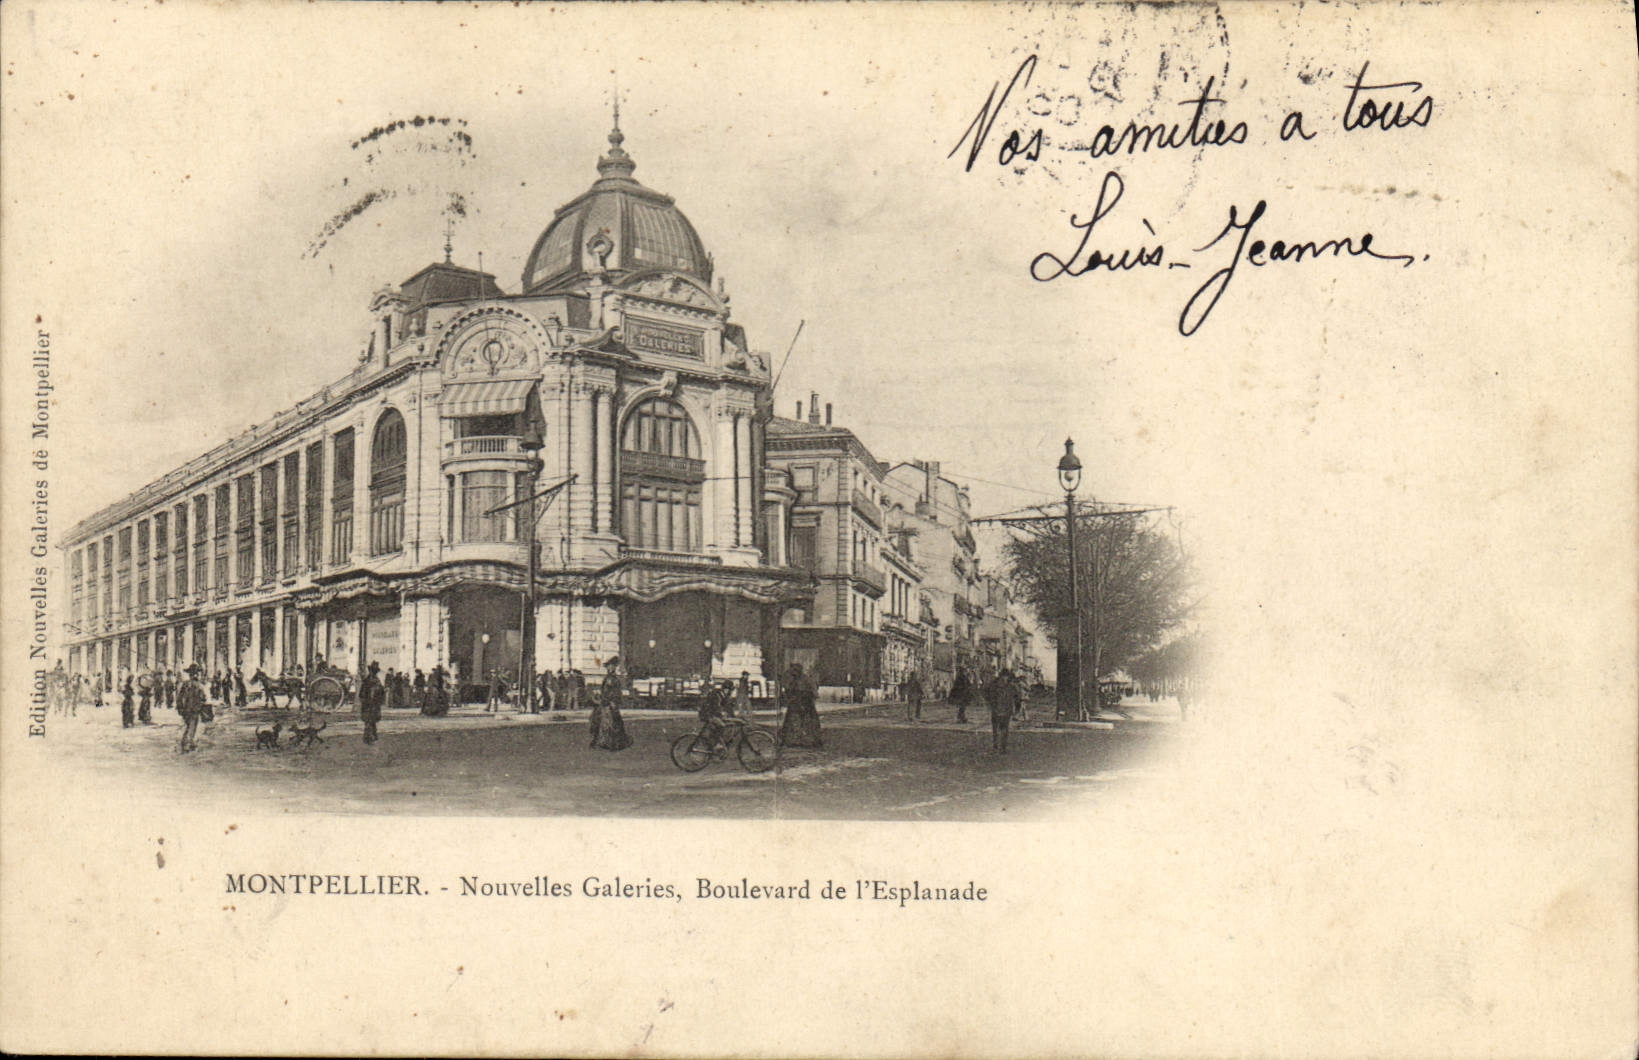 Vos amities a tous
Louis - Jeanne.
NOUVELLES
GALERIES
NOUVELLES
GALERIES
Edition Nouvelles Galeries de Montpellier
MONTPELLIER. - Nouvelles Galeries, Boulevard de l'Esplanade